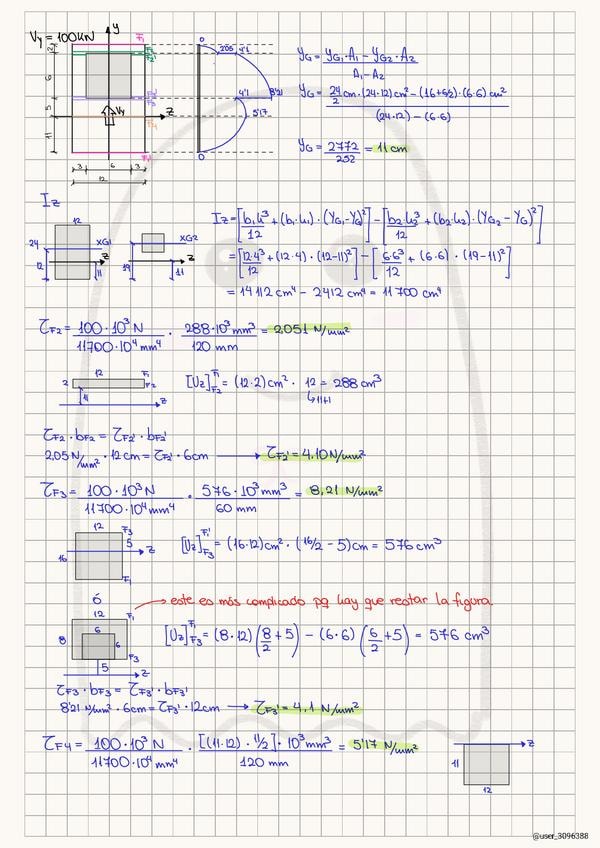 Vy = 100KN
y
F1
F2
F2'
F3'
F3
Vy
z
F4
F4'
2
6
5
11
3 6 3
12
0
2'05 4'1
4'1 8'21
5'17
0
YG = YG1·A1 - YG2·A2 / A1-A2
YG = 24/2 cm·(24·12)cm² - (16+6/2)·(6·6)cm² / (24·12) - (6·6)
YG = 2772/252 = 11cm
Iz
12
24
XG1
z
12
11
XG2
z
19
11
Iz = [b1·h1³/12 + (b1·h1)·(YG1-YG)²] - [b2·h2³/12 + (b2·h2)·(YG2-YG)²]
= [12·4³/12 + (12·4)·(12-11)²] - [6·6³/12 + (6·6)·(19-11)²]
= 14112 cm⁴ - 2412 cm⁴ = 11700 cm⁴
τF2 = 100·10³ N / 11700·10⁴ mm⁴ · 288·10³ mm³ / 120 mm = 2,051 N/mm²
12
F1
2
F2
11
z
[Uz]F1F2 = (12·2)cm² · 12 = 288 cm³
↳11+1
τF2·bF2 = τF2'·bF2'
2,05 N/mm² · 12cm = τF2'·6cm → τF2' = 4,10 N/mm²
τF3 = 100·10³ N / 11700·10⁴ mm⁴ · 576·10³ mm³ / 60 mm = 8,21 N/mm²
12
F3
5
z
16
F1
[Uz]F1'F3 = (16·12)cm² · (16/2 - 5)cm = 576 cm³
ó
→ este es más complicado pq hay que restar la figura.
12
F1
6
8
6
F3
5
z
[Uz]F1F3 = (8·12)(8/2 + 5) - (6·6)(6/2 + 5) = 576 cm³
τF3·bF3 = τF3'·bF3'
8'21 N/mm² · 6cm = τF3'·12cm → τF3' = 4,1 N/mm²
τF4 = 100·10³ N / 11700·10⁴ mm⁴ · [(11·12)·11/2]·10³ mm³ / 120 mm = 5'17 N/mm²
z
11
12
@user_3096388